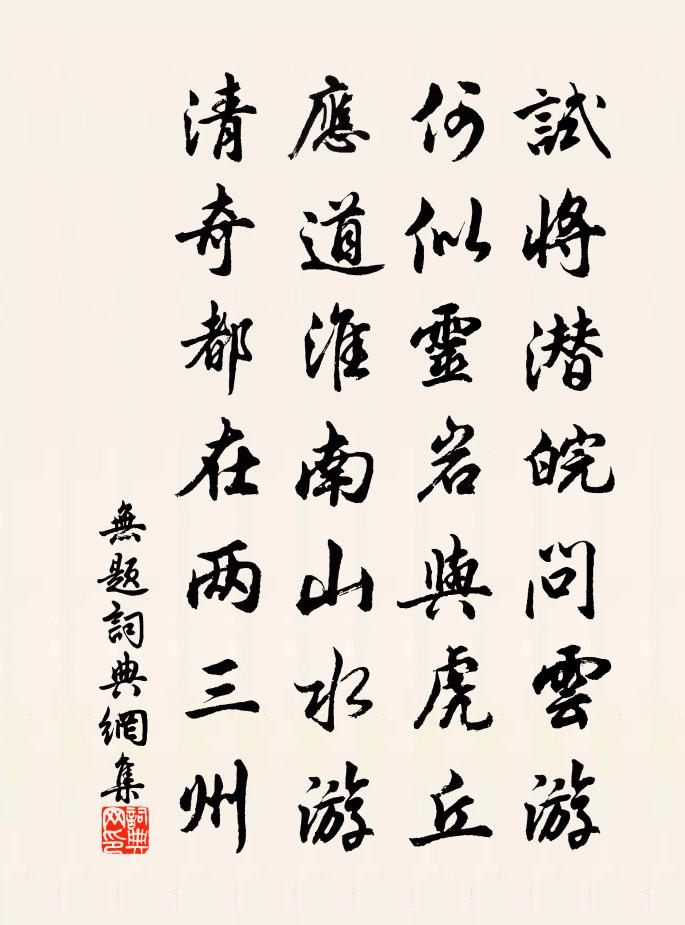 試將潛皖問雲游
何似靈岩與虎丘
應道淮南山水游
清奇都在两三州
無題詞典網集
詞典网印